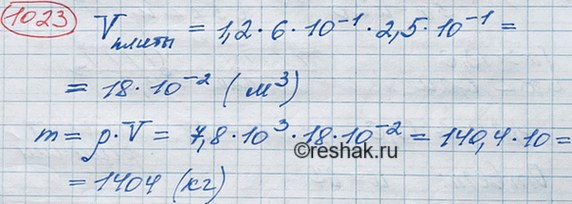 1023 Vплиты = 1,2 · 6 · 10⁻¹ · 2,5 · 10⁻¹ =
= 18 · 10⁻² (м³)
m = ρ · V = 7,8 · 10³ · 18 · 10⁻² = 140,4 · 10 =
©reshak.ru
= 1404 (кг)